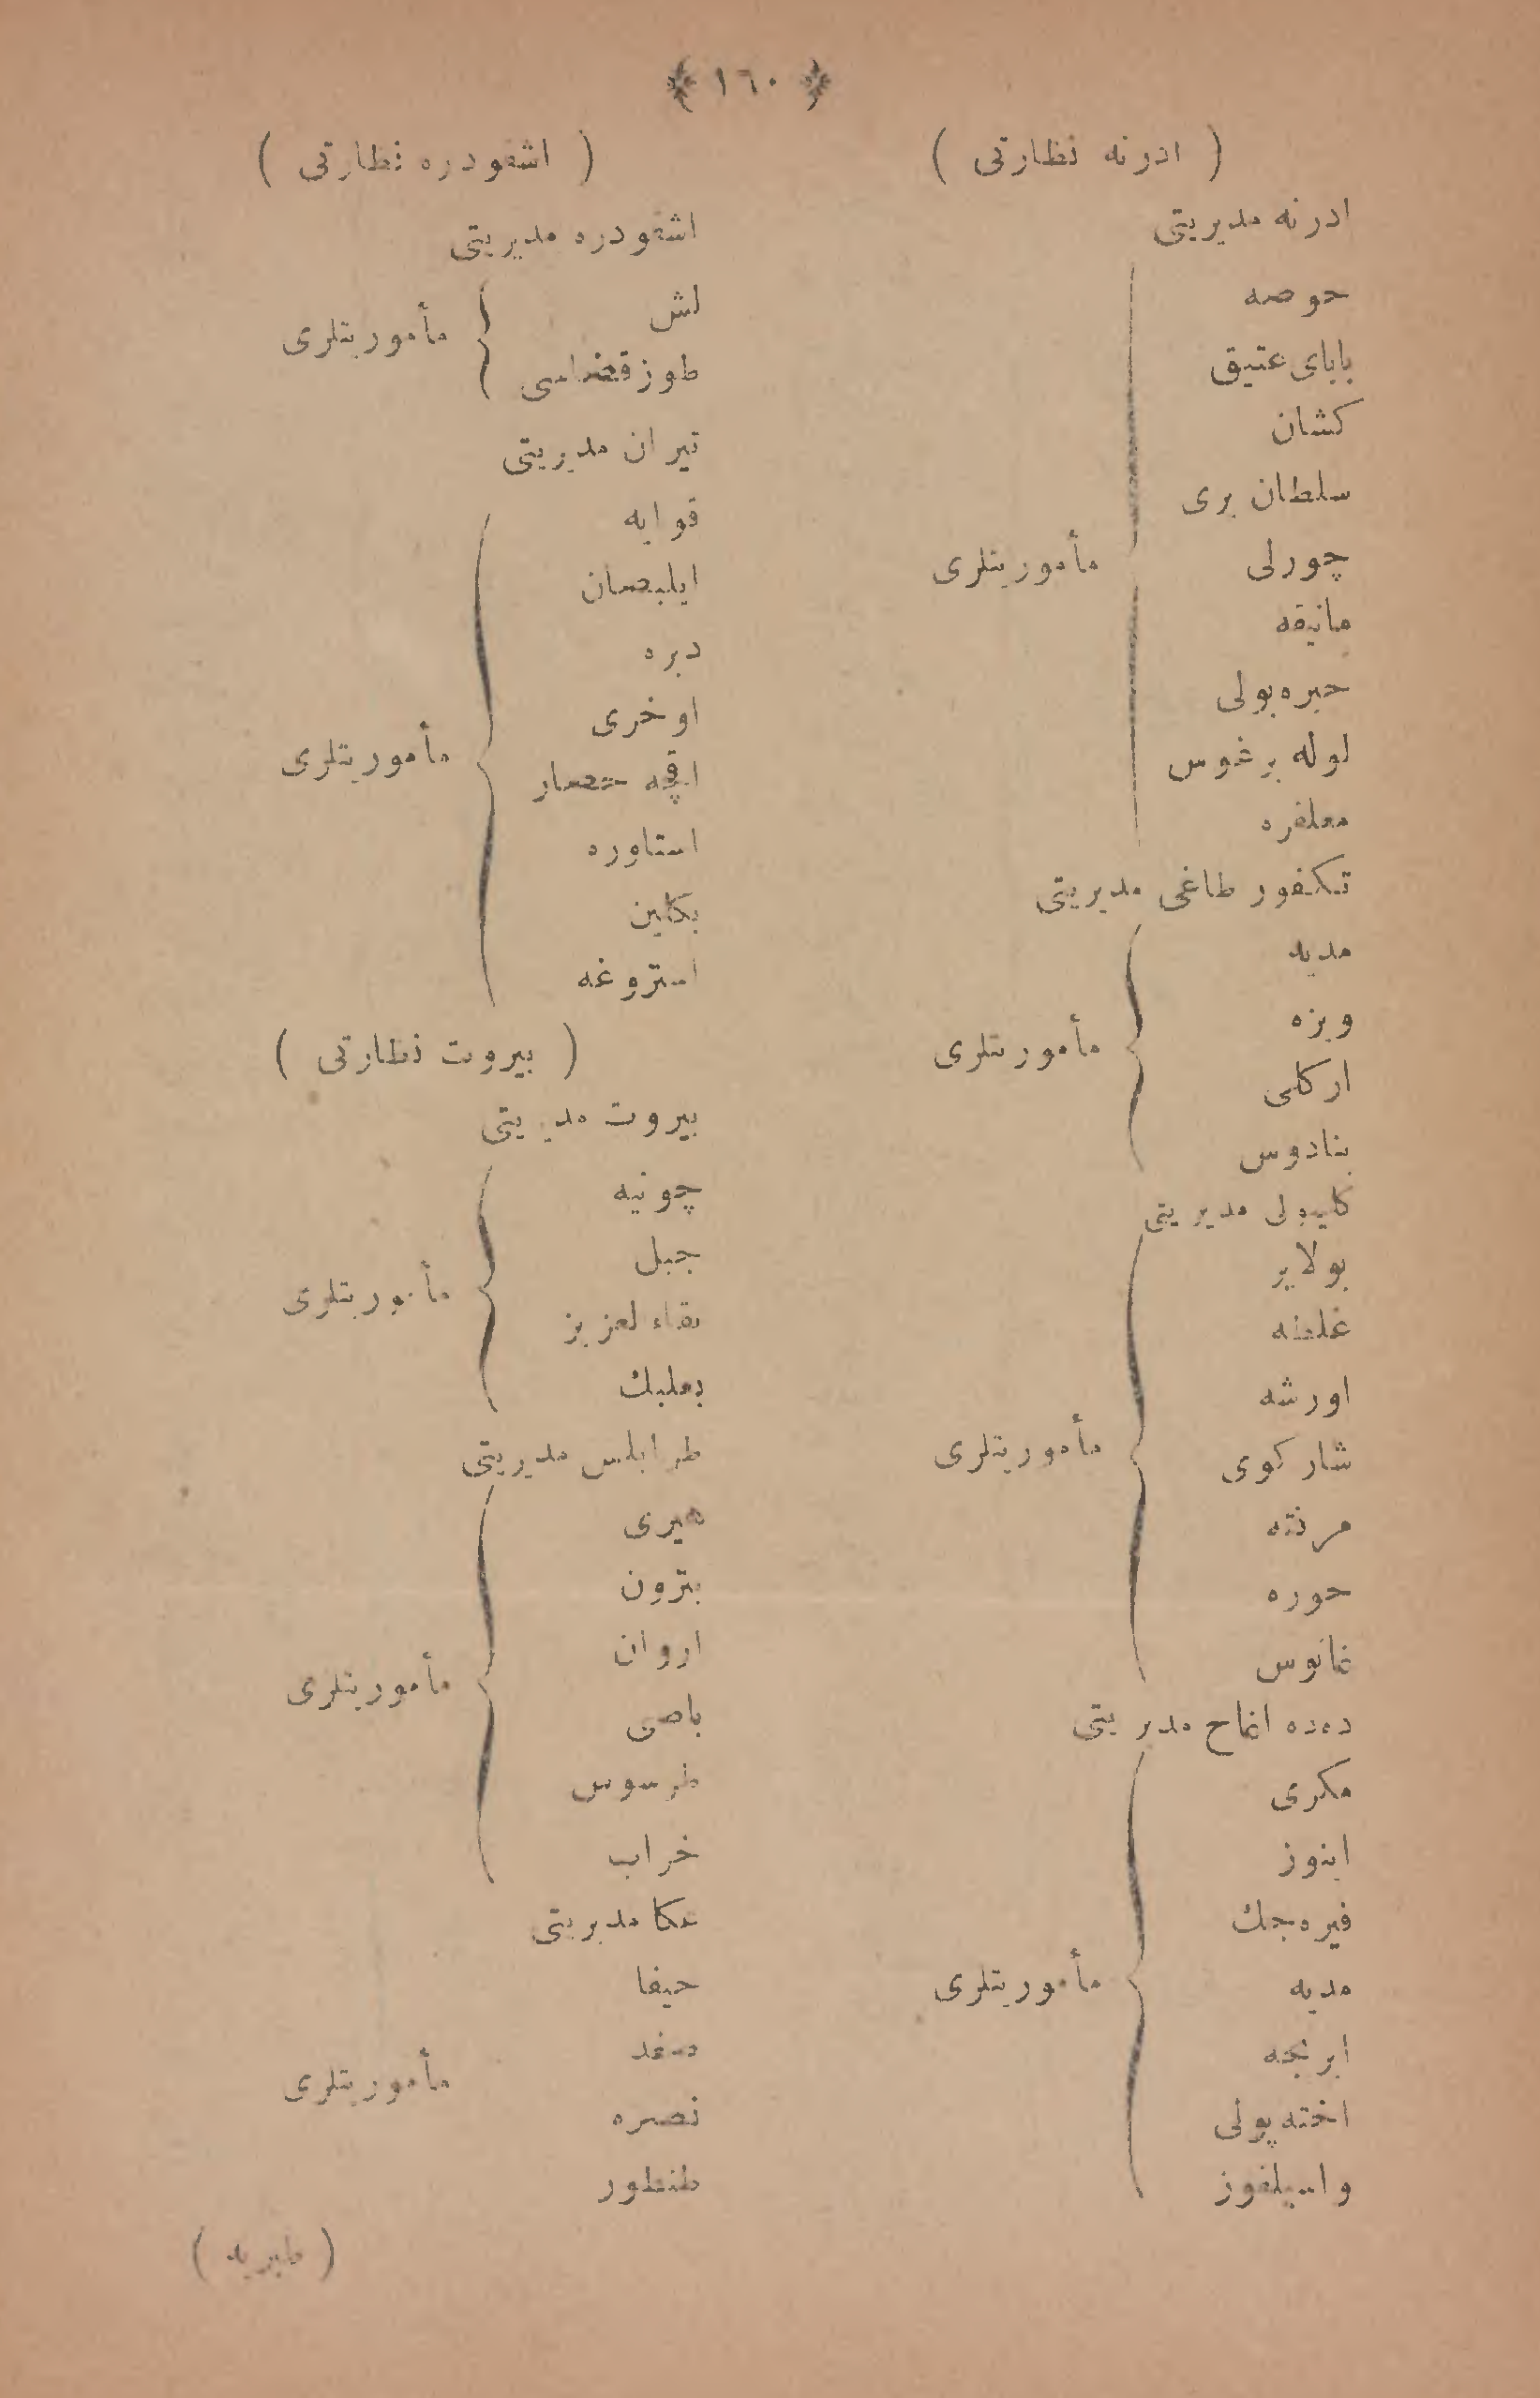 ﴿ ١٦٠ ﴾
( ادرنه نظارتی )
ادرنه مدیریتی
حوصه
بابای عتیق
کشان
سلطان یری
چورلی
مانیقه
حیره بولی
لوله برغوس
معلغره
مأموریتلری
تکفور طاغی مدیریتی
مدیه
ویزه
ارکلی
بنادوس
مأموریتلری
کلیبولی مدیریتی
بولایر
غلطه
اورشه
شارکوی
مرفته
حوره
غانوس
مأموریتلری
دده اغاج مدیریتی
مکری
اینوز
فیره جك
مدیه
ایرنجه
اخته پولی
واسیلقوز
مأموریتلری
( اشقودره نظارتی )
اشقودره مدیریتی
لش
طوز قضاسی
مأموریتلری
تیران مدیریتی
قوایه
ایلبصان
دبره
اوخری
اقچه حصار
استاوره
بکلین
استروغه
مأموریتلری
( بیروت نظارتی )
بیروت مدیریتی
چونیه
جبل
بقاء لعزیز
بعلبك
مأموریتلری
طرابلس مدیریتی
هیری
بترون
اروان
باصی
طرسوس
خراب
مأموریتلری
عکا مدیریتی
حیفا
صفد
نصره
طنطور
مأموریتلری
( طبریه )